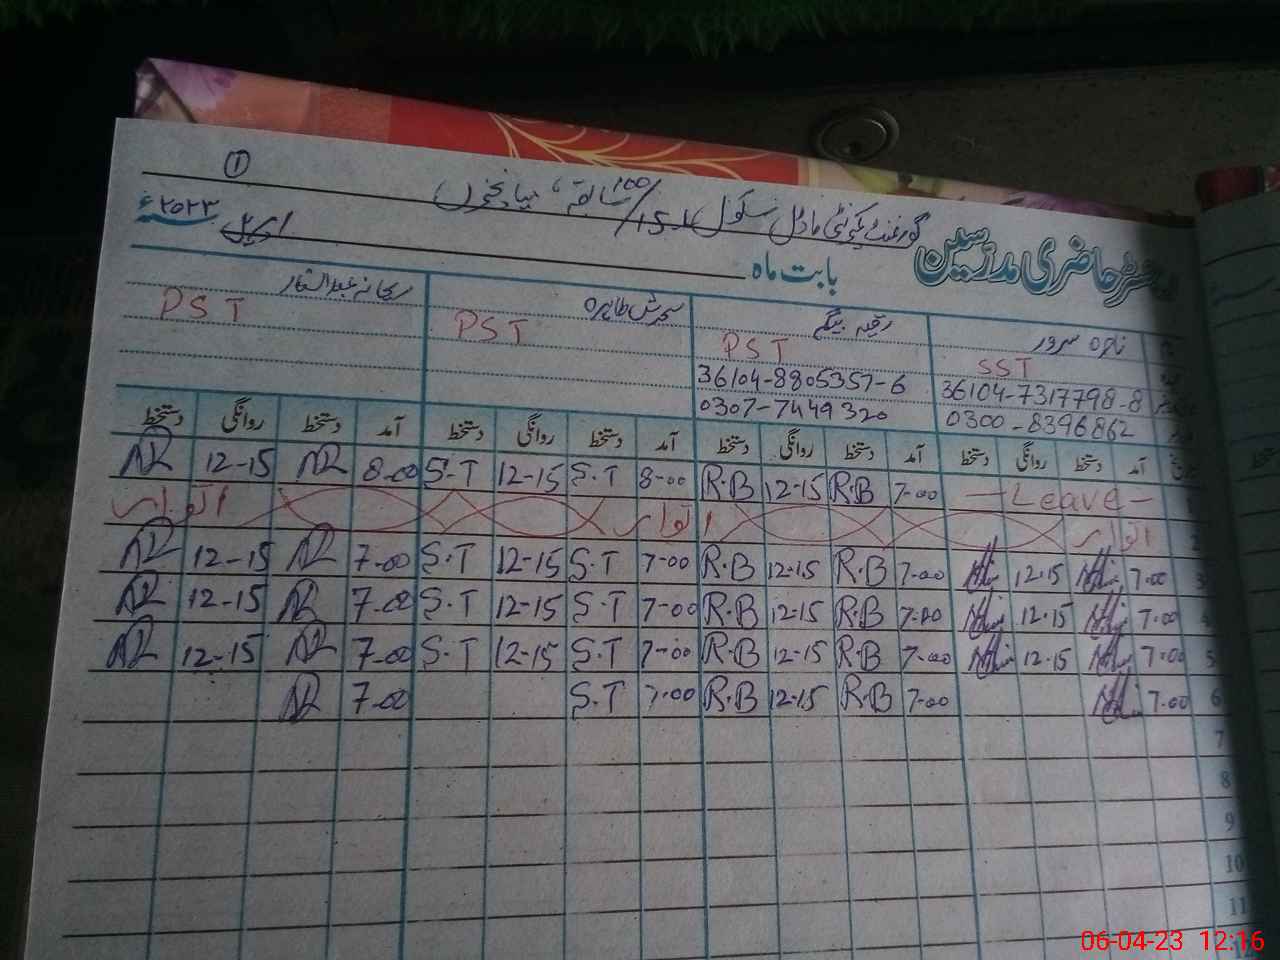 ①
گورنمنٹ کمیونٹی ماڈل سکول 100/15.L سابقہ، میاں چنوں
رجسٹر حاضری مدرسین
بابت ماہ اپریل ۲۰۲۳ء
نادرہ سرور رقیہ بیگم سحرش طاہرہ ریحانہ عبدالستار
SST PST PST PST
36104-7317798-8 36104-8805357-6
0300-8396862 0307-7449320
آمد دستخط روانگی دستخط آمد دستخط روانگی دستخط آمد دستخط روانگی دستخط آمد دستخط روانگی دستخط
— Leave — 7-00 R.B 12-15 R.B 8-00 S.T 12-15 S.T 8-00 12-15
2 اتوار اتوار اتوار
3 7-00 12-15 7-00 R.B 12-15 R.B 7-00 S.T 12-15 S.T 7-00 12-15
4 7-00 12-15 7-00 R.B 12-15 R.B 7-00 S.T 12-15 S.T 7-00 12-15
5 7-00 12-15 7-00 R.B 12-15 R.B 7-00 S.T 12-15 S.T 7-00 12-15
6 7-00 7-00 R.B 12-15 R.B 7-00 S.T 7-00
7
8
9
10
11
12
06-04-23 12:16